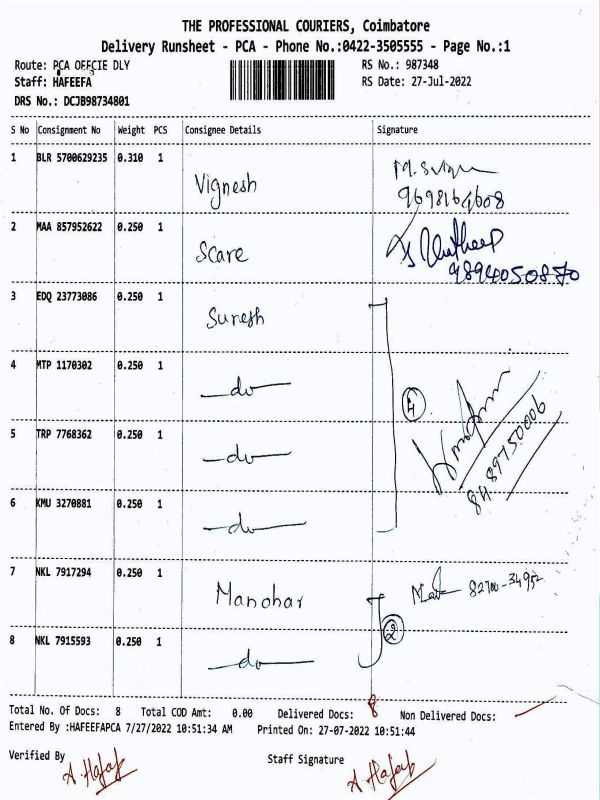 THE PROFESSIONAL COURIERS, Coimbatore
Delivery Runsheet - PCA - Phone No.:0422-3505555 - Page No.:1
Route: PCA OFFCIE DLY RS No.: 987348
Staff: HAFEEFA RS Date: 27-Jul-2022
DRS No.: DCJB98734801
S No Consignment No Weight PCS Consignee Details Signature
1 BLR 5700629235 0.310 1 Vignesh
9698164608
2 MAA 857952622 0.250 1 Scare
9894050870
3 EDQ 23773086 0.250 1 Suresh
4 MTP 1170302 0.250 1 -do- 4
5 TRP 7768362 0.250 1 -do- 8489750006
6 KMU 3270881 0.250 1 -do-
7 NKL 7917294 0.250 1 Manohar
8 NKL 7915593 0.250 1 -do- 2
Total No. Of Docs: 8 Total COD Amt: 0.00 Delivered Docs: 8 Non Delivered Docs:
Entered By :HAFEEFAPCA 7/27/2022 10:51:34 AM Printed On: 27-07-2022 10:51:44
Verified By A. Hafaf Staff Signature A. Hafaf